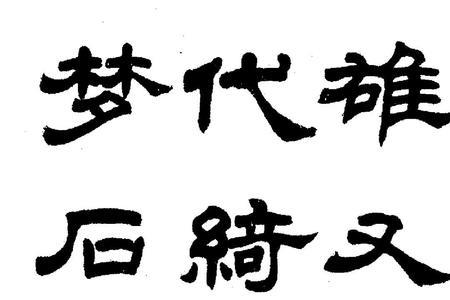 梦代雄
石綺又